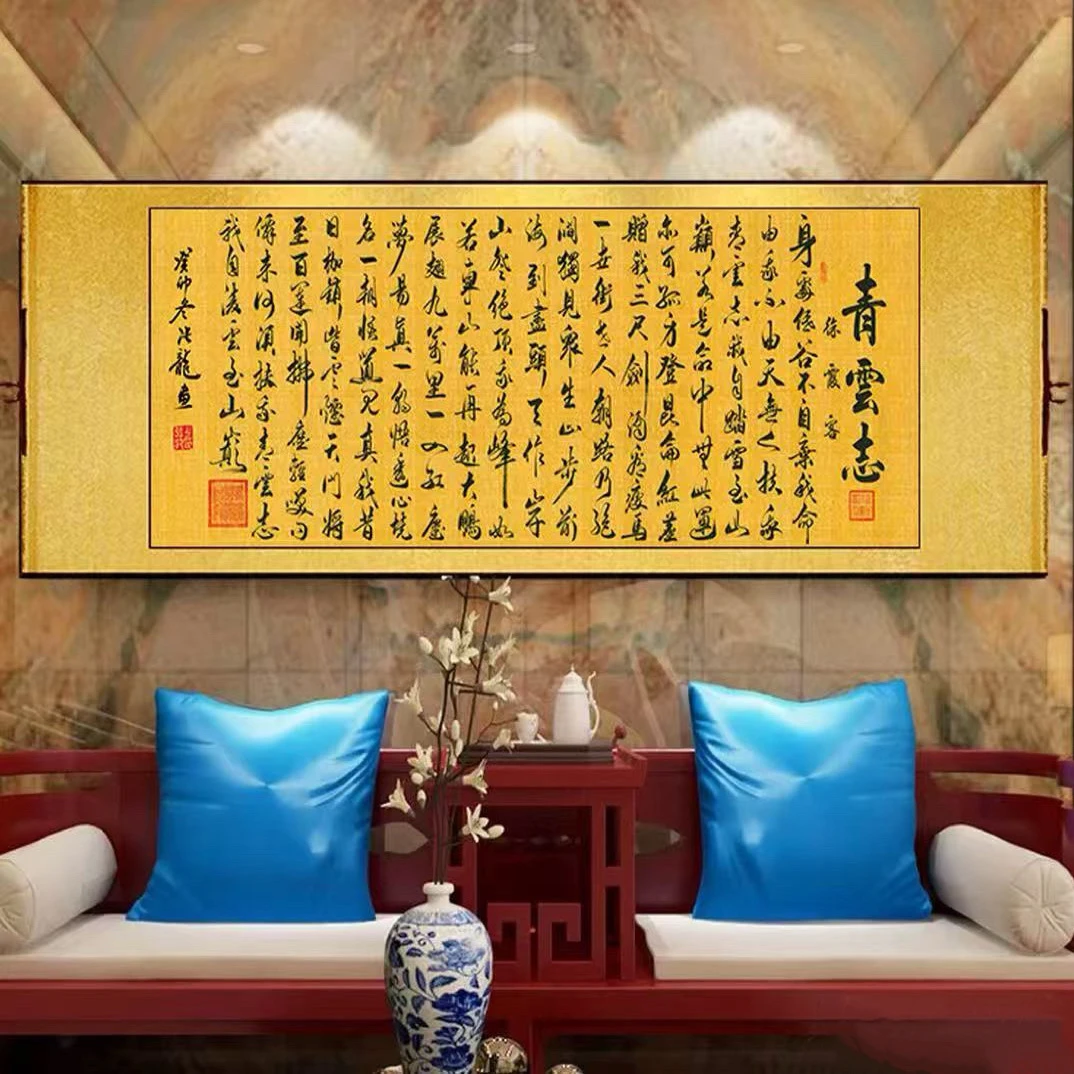 青雲志
徐霞客
身處低谷不自棄我命
由我不由天無人扶我
青雲志我自踏雪至山
巔若是命中無此運
亦可孤方登昆侖紅塵
贈我三尺劍酒瘦馬
一世街世人朝路乃絕
間獨見眾生止步前
海到盡頭天作岸
山登絕頂我為峰如
若東山能再起大鵬
展翅九萬里一入紅塵
夢易真一朝悟透心境
名一朝悟道見真我昔
日枷鎖皆雲煙天門將
至百蓮開拂塵輕嘆問
僊來何須扶我青雲志
我自凌雲至山巔
癸卯冬龍書